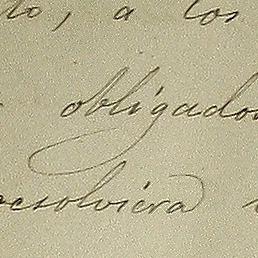 to, a los
obligados
resolviera